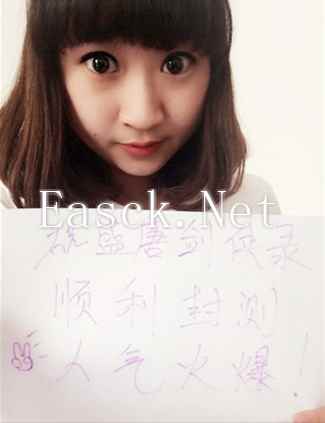 Easck.Net
祝盛唐剑侠录
顺利封测
人气火爆！